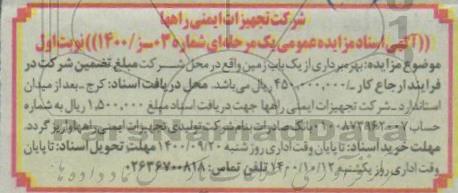 شرکت تجهیزات ایمنی راهها
((آگهی اسناد مزایده عمومی یک مرحله‌ای شماره ۰۳-ز/۱۴۰۰)) نوبت اول
موضوع مزایده: بهره‌برداری از یک باب زمین واقع در محل شرکت مبلغ تضمین شرکت در
فرایند ارجاع کار ۴۵۰,۰۰۰,۰۰۰/- ریال می‌باشد. محل دریافت اسناد: کرج - بعد از میدان
استاندارد - شرکت تجهیزات ایمنی راهها جهت دریافت اسناد مبلغ ۱,۵۰۰,۰۰۰ ریال به شماره
حساب بانک صادرات بنام شرکت تولیدی تجهیزات ایمنی راهها واریز گردد.
مهلت خرید اسناد: تا پایان وقت اداری روز ۱۴۰۰/۰۹/۲۰ مهلت تحویل اسناد: تا پایان
وقت اداری روز یکشنبه ۱۴۰۰/۱۰/۱۲ تلفن تماس: ۰۲۶۳۶۷۰۰۸۱۸